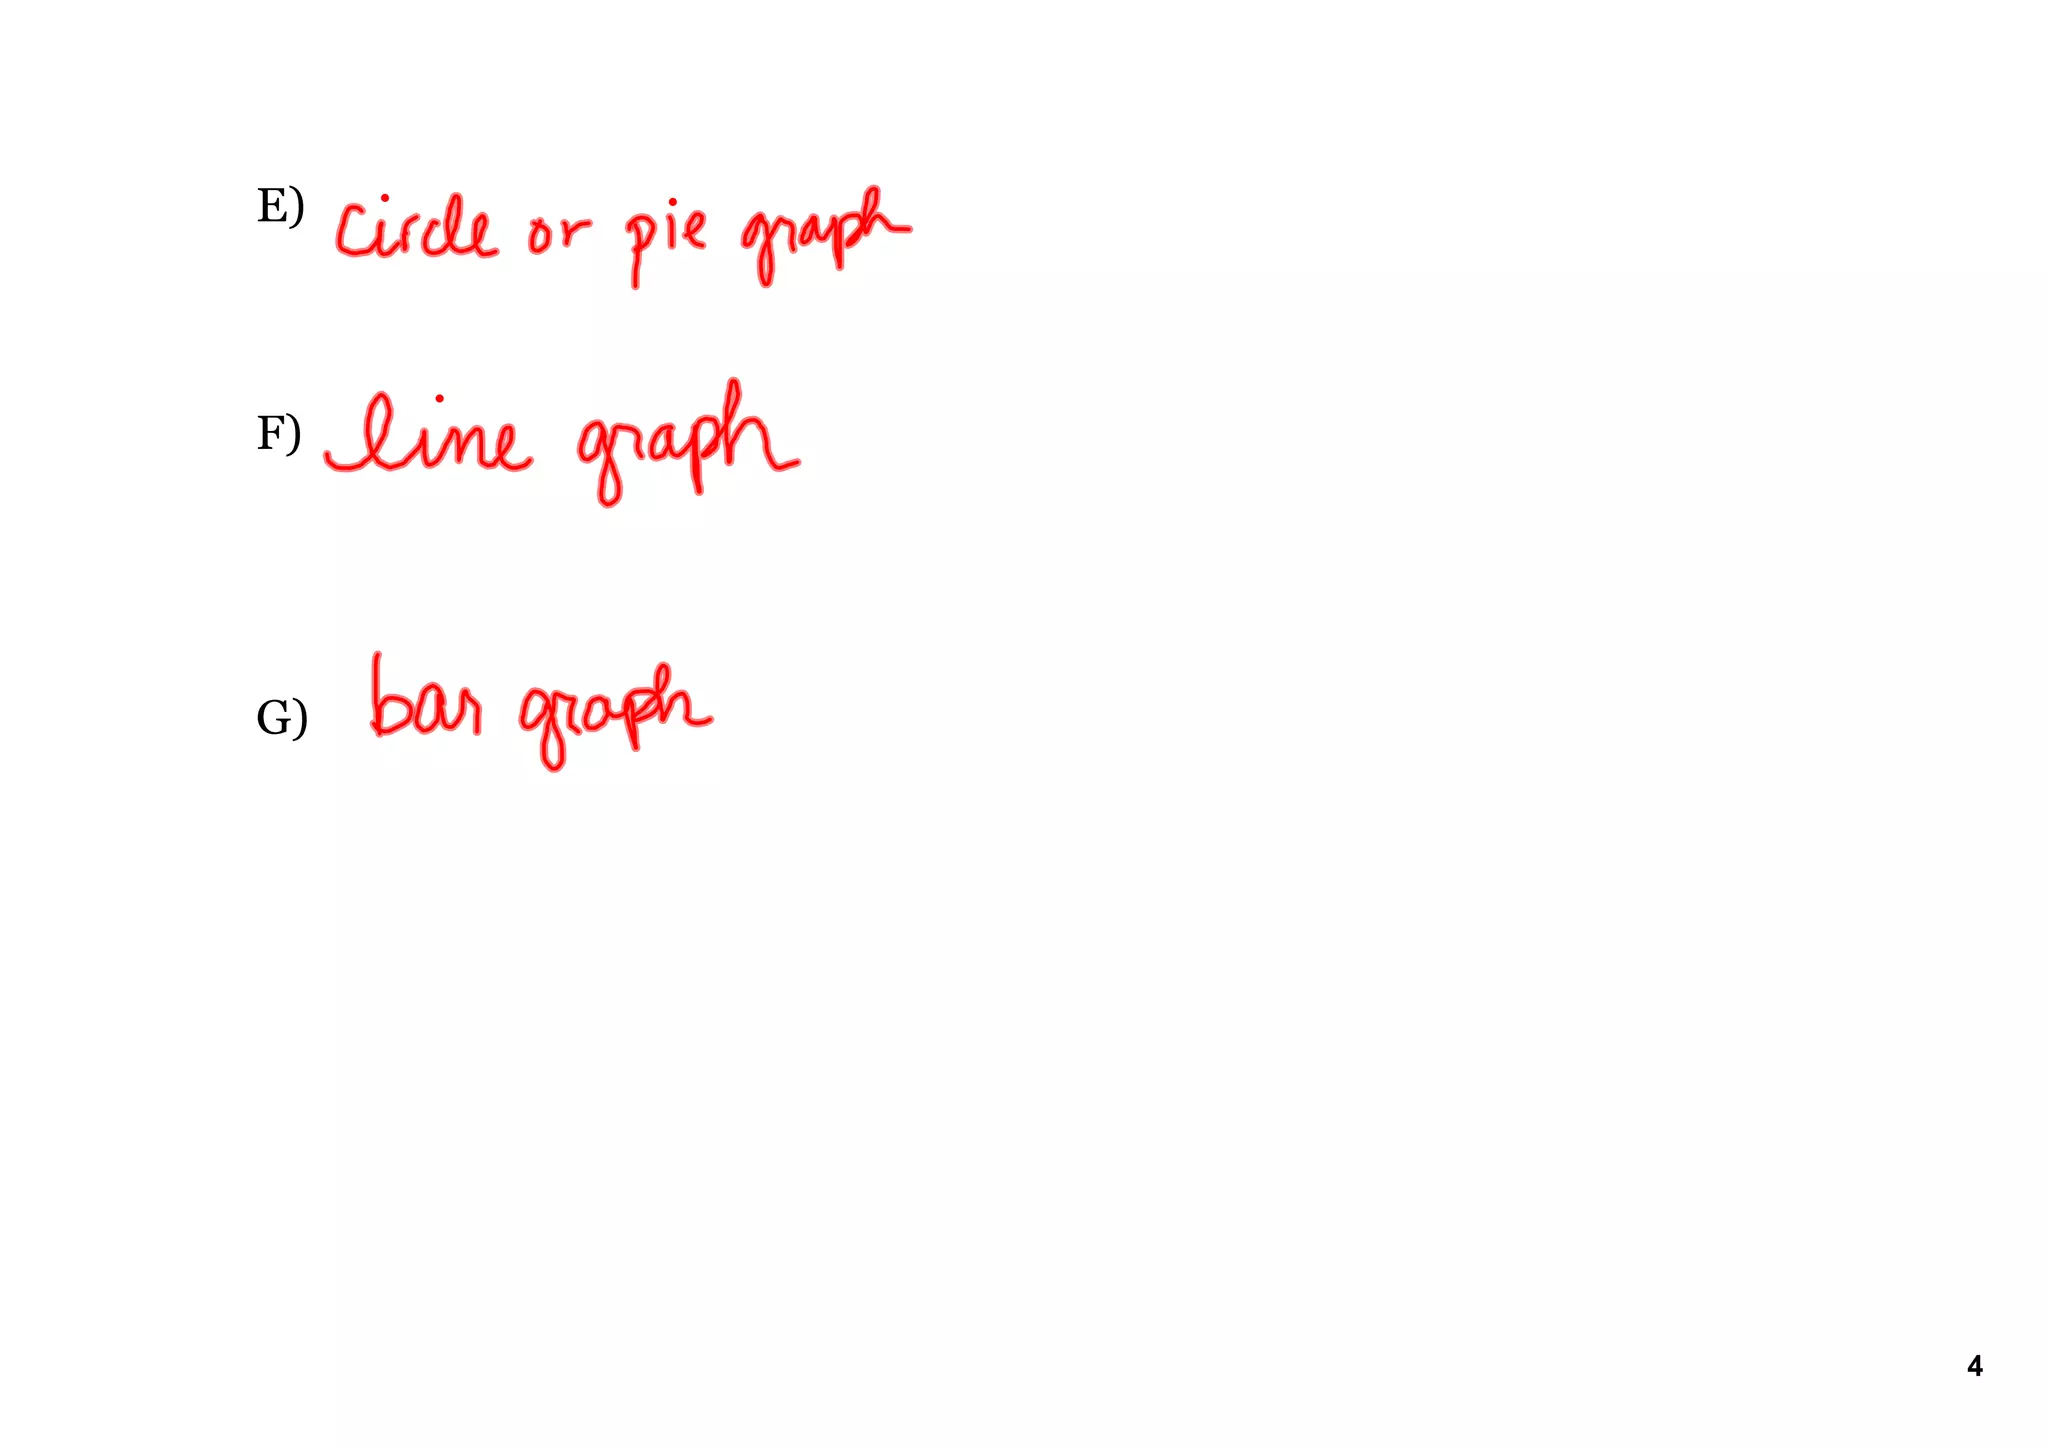 E) circle or pie graph
F) line graph
G) bar graph
4